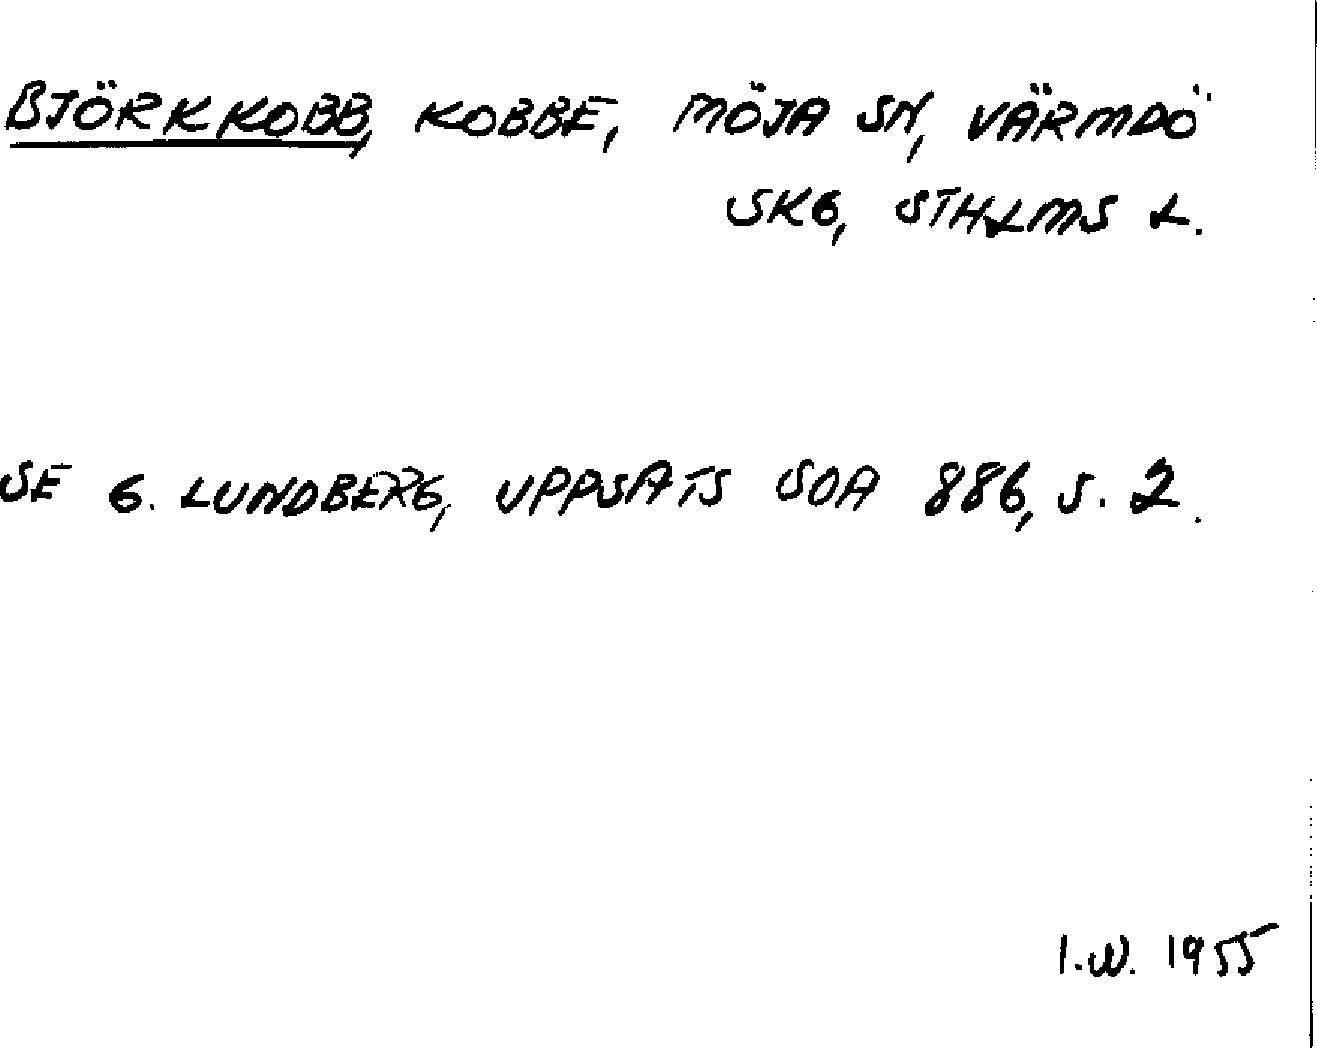 BJÖRKKOBB, KOBBE, MÖJA SN, VÄRMDÖ
SKG, STHLMS L.
SE G. LUNDBERG, UPPSATS SOA 886, S. 2.
I.W. 1955